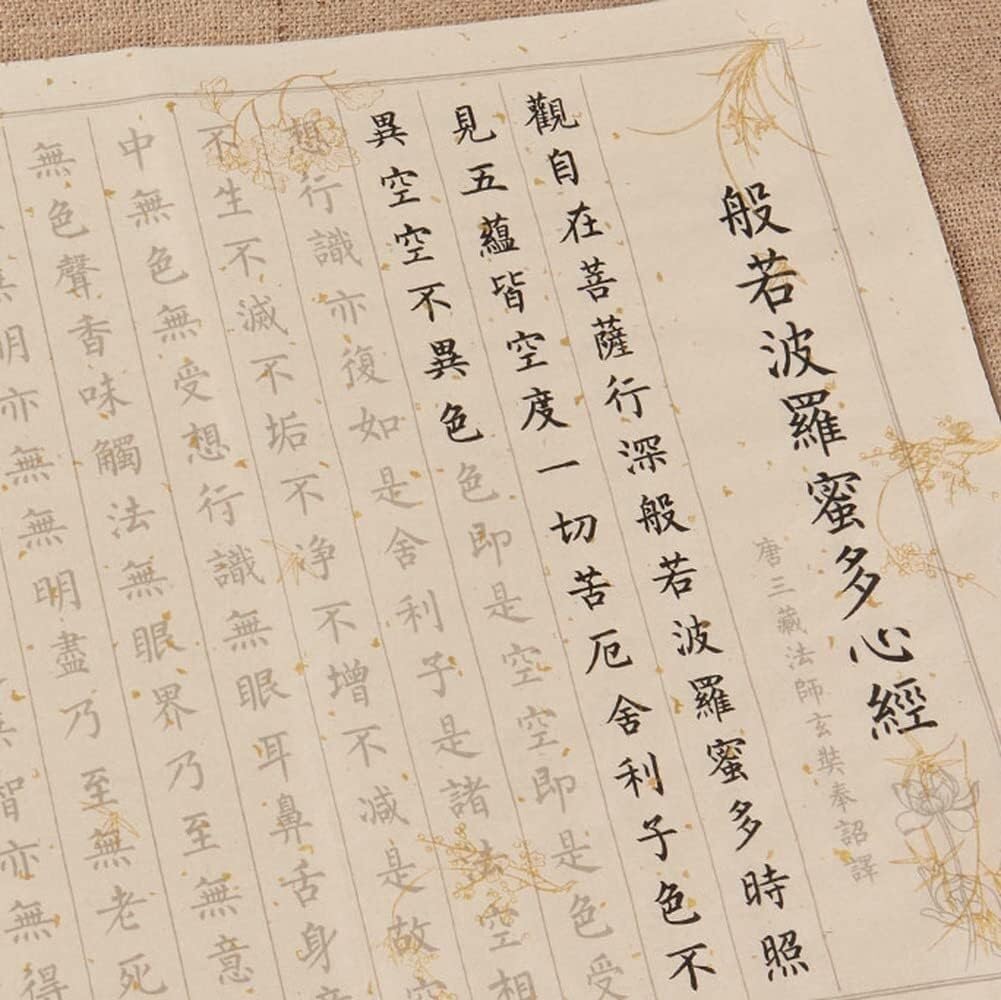 般若波羅蜜多心經
唐三藏法師玄奘奉詔譯
觀自在菩薩行深般若波羅蜜多時照
見五蘊皆空度一切苦厄舍利子色不
異空空不異色色即是空空即是色受
想行識亦復如是舍利子是諸法空相
不生不滅不垢不净不增不减是故空
中無色無受想行識無眼耳鼻舌身
無色聲香味觸法無眼界乃至無意
明亦無無明盡乃至無老死
智亦無得